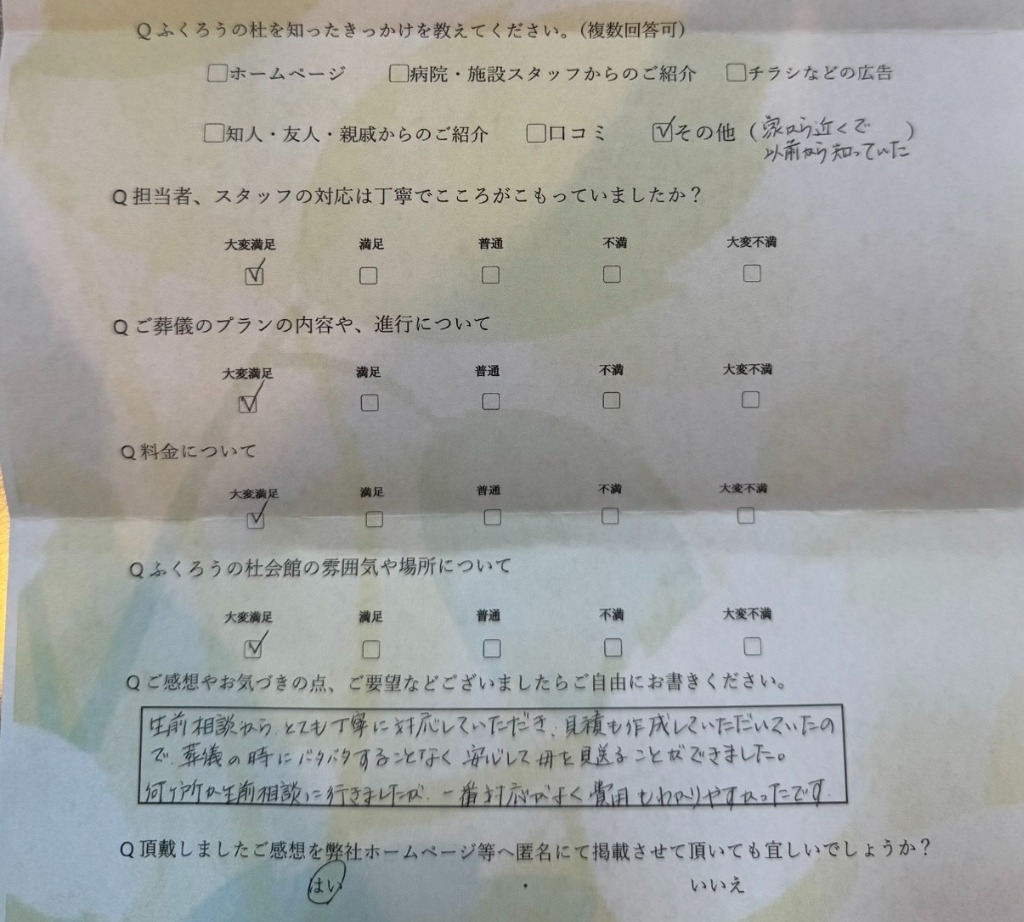 Q ふくろうの杜を知ったきっかけを教えてください。(複数回答可)
□ホームページ □病院・施設スタッフからのご紹介 □チラシなどの広告
□知人・友人・親戚からのご紹介 □口コミ ☑その他 (家から近くで
以前から知っていた)
Q 担当者、スタッフの対応は丁寧でこころがこもっていましたか？
大変満足 満足 普通 不満 大変不満
☑ □ □ □ □
Q ご葬儀のプランの内容や、進行について
大変満足 満足 普通 不満 大変不満
☑ □ □ □ □
Q 料金について
大変満足 満足 普通 不満 大変不満
☑ □ □ □ □
Q ふくろうの杜会館の雰囲気や場所について
大変満足 満足 普通 不満 大変不満
☑ □ □ □ □
Q ご感想やお気づきの点、ご要望などございましたらご自由にお書きください。
生前相談から、とても丁寧に対応していただき、見積も作成していただいていたの
で、葬儀の時にバタバタすることなく安心して母を見送ることができました。
何ヶ所か生前相談に行きましたが、一番対応がよく費用もわかりやすかったです。
Q 頂戴しましたご感想を弊社ホームページ等へ匿名にて掲載させて頂いても宜しいでしょうか？
はい ・ いいえ